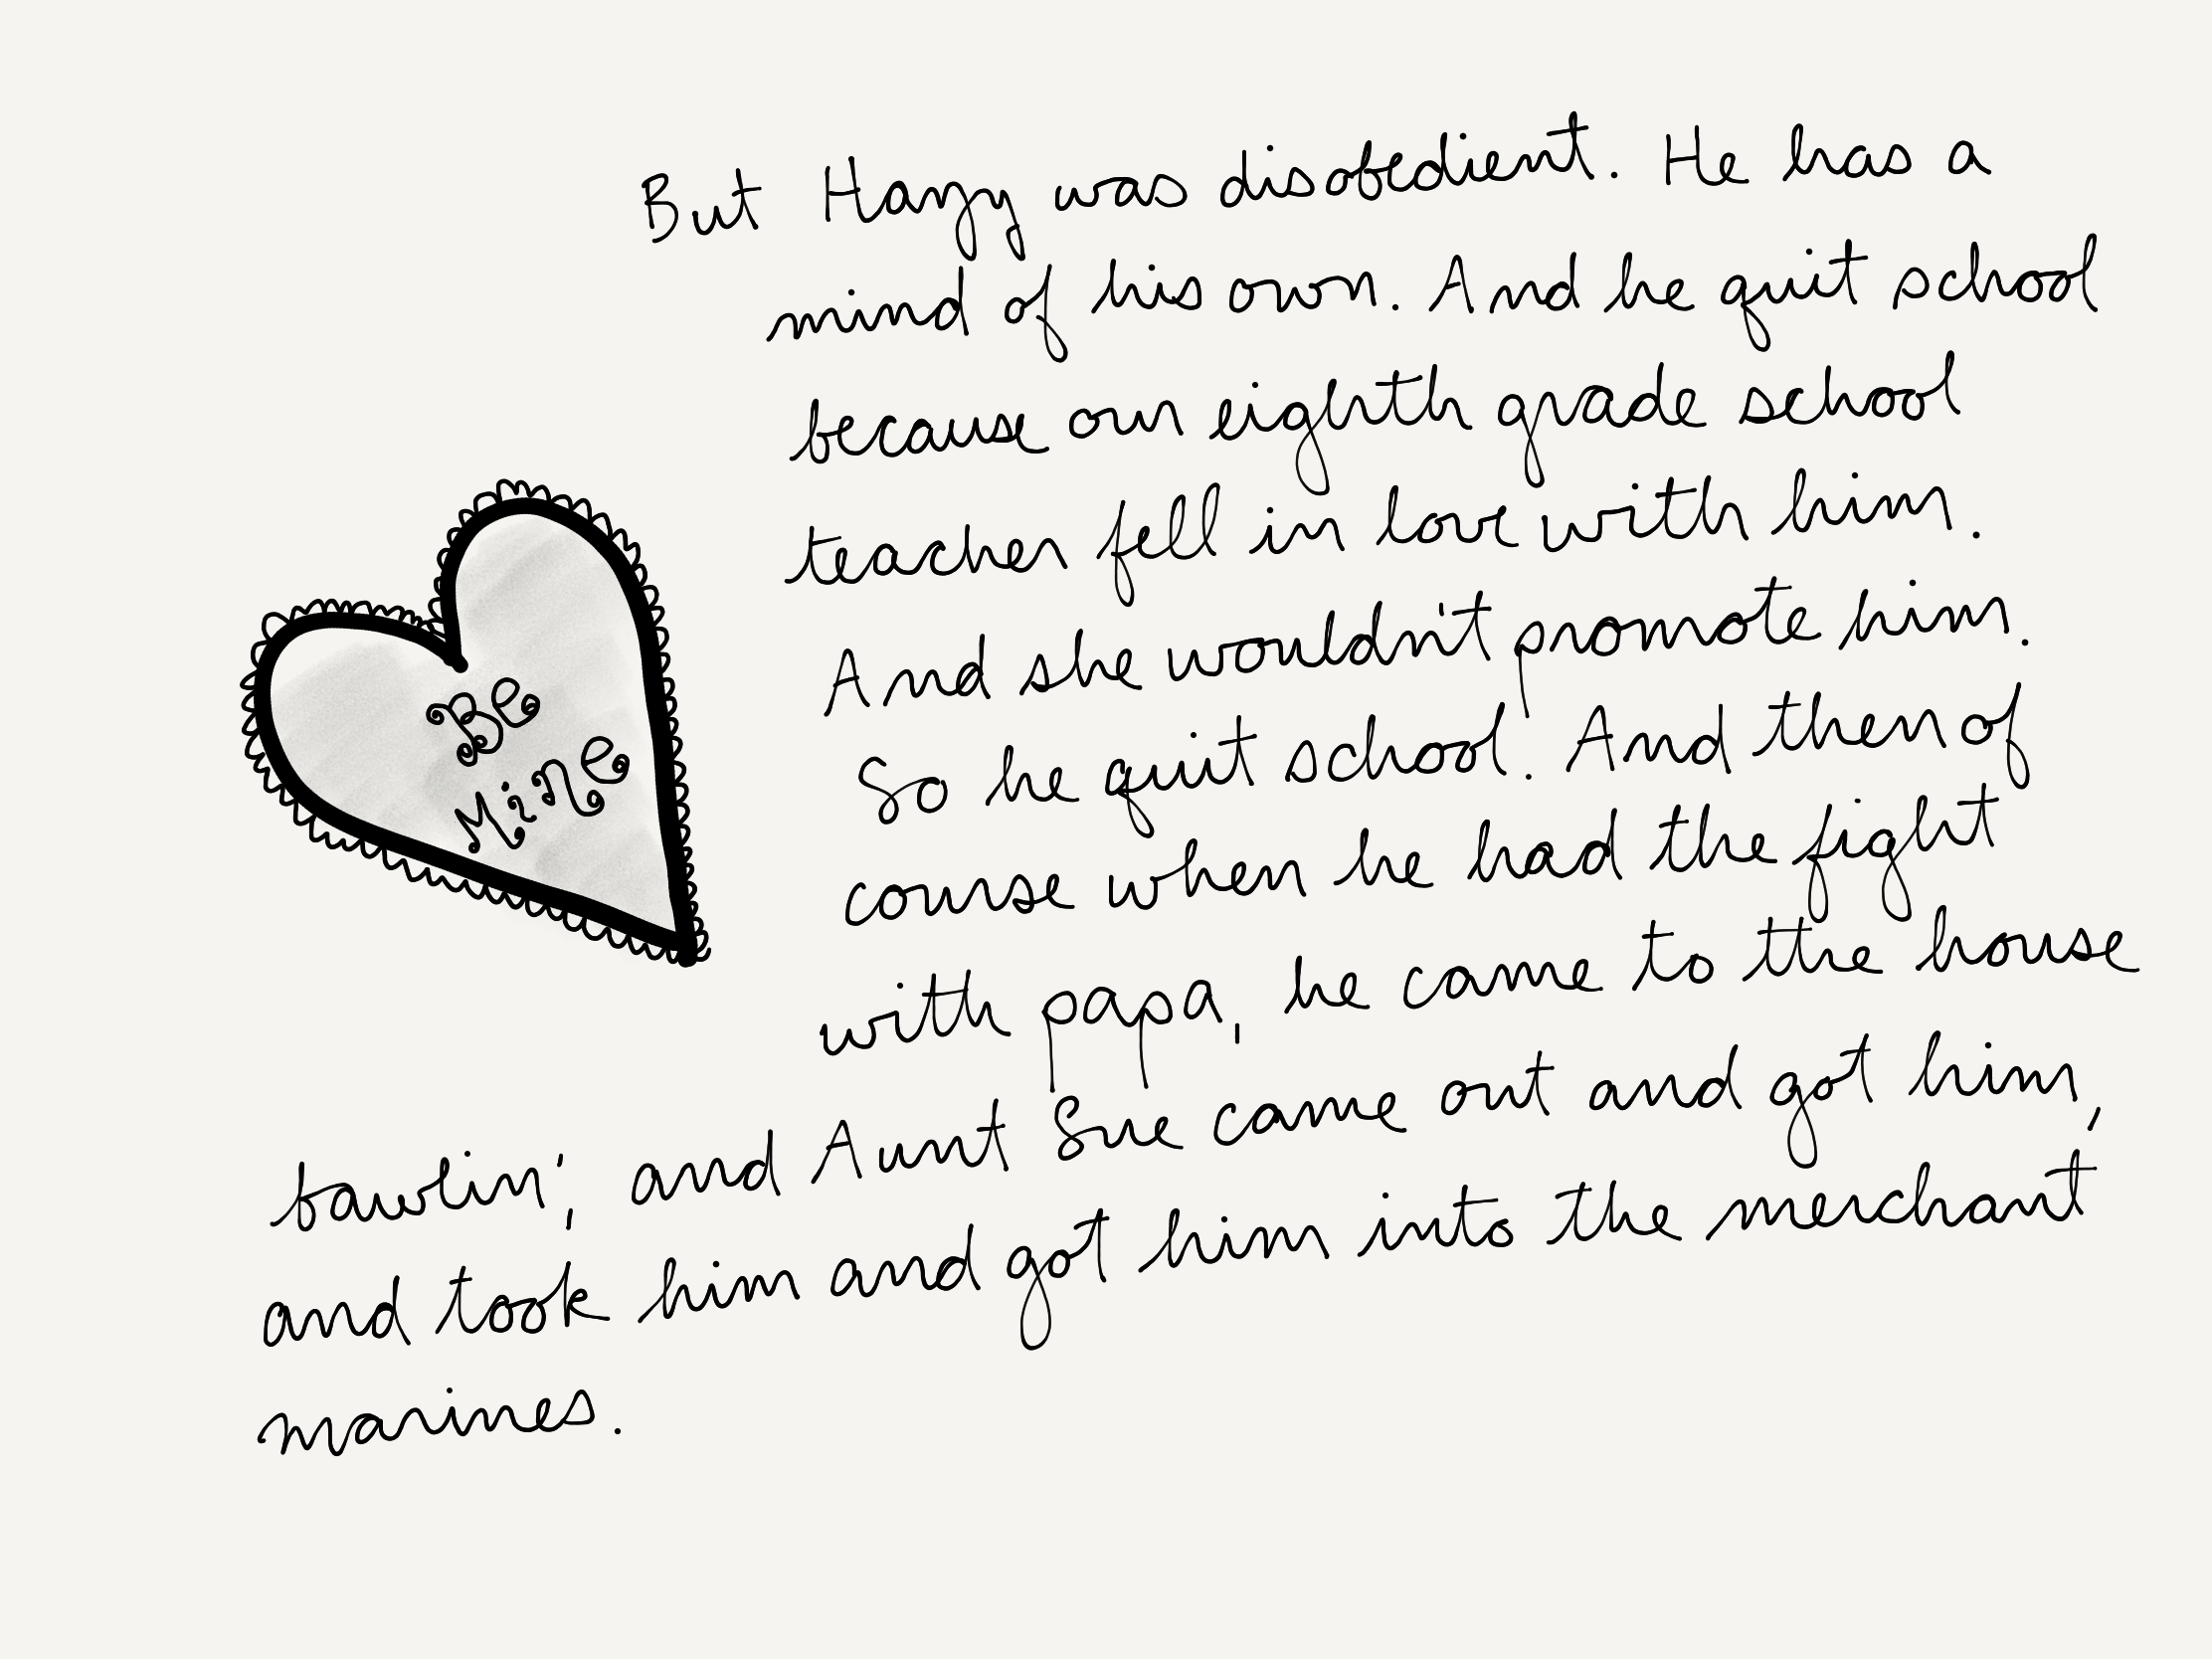 But Hazy was disobedient. He has a
mind of his own. And he quit school
because our eighth grade school
teacher fell in love with him.
And she wouldn't promote him.
So he quit school. And then of
course when he had the fight
with papa, he came to the house
bawlin', and Aunt Sue came out and got him,
and took him and got him into the merchant
marines.
Be
Mine